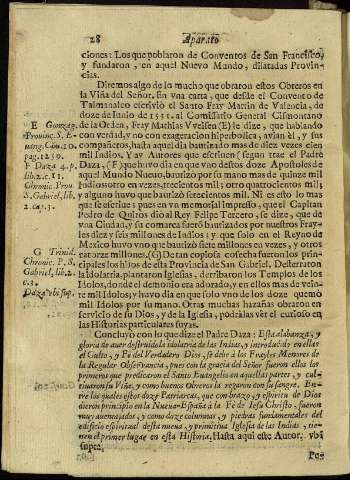 28 Aparato
ciones: Los que poblaron de Conventos de San Francisco,
y fundaron, en aquel Nuevo Mundo, dilatadas Provin-
cias.
Diremos algo de lo mucho que obraron estos Obreros en
la Viña del Señor. En vna carta, que desde el Convento de
Talmanalco escrivió el Santo Fray Martin de Valencia, de
doze de Iunio de 1531. al Comissario General Cismontano
de la Orden, Fray Mathias Vveissen (E) le dize, que hablando
con verdad, y no con exageracion hiperbolica, avian él, y sus
compañeros, hasta aquel dia bautizado mas de diez vezes cien
mil Indios, Y ay Autores que escriven (segun trae el Padre
Daza, (F) que huvo dia en que vno destos doze Apostoles de
aquel Mundo Nuevo, bautizò por su mano mas de quinze mil
Indios: otro en vezes, trecientos mil; otro quatrocientos mil;
y alguno huvo que bautizó setecientos mil. Ni es esto lo mas
que se escrive: pues en vn memorial impresso, que el Capitan
Pedro de Quiros diò al Rey Felipe Tercero, se dize, que de
vna Ciudad, y su comarca fuerõ bautizados por nuestros Fray-
les diez y seis millones de Indios: y que solo en el Reyno de
Mexico huvo vno que bautizò siete millones en vezes, y otros
catorze millones. (G) De tan copiosa cosecha fueron los prin-
cipales los hijos de esta Provincia de San Gabriel. Desterraron
la idolatria, plantaron Iglesias, derribaron los Templos de los
Idolos, donde el demonio era adorado, y en ellos mas de vein-
te mil Idolos; y havo dia en que solo vno de los doze quemó
mil Idolos por su mano. Otras muchas hazañas obraron en
servicio de su Dios, y de la Iglesia, y podràlas vèr el curioso en
las Historias particulares suyas.
Concluyò con lo que dize el Padre Daza: Esta alabança, y
gloria de aver destruido la idolatria de las Indias, y introducido en ellas
el Culto, y Fè del Verdadero Dios, se debe à los Frayles Menores de
la Regular Observancia, pues con la gracia del Señor fueron ellos los
primeros que predicaron el Santo Euangelio en aquellas partes, y cul-
tivaron su Viña, y como buenos Obreros la regaron con su sangre. En-
tre los quales estos doze Patriarcas, que con brazo, y espiritu de Dios
dieron principio en la Nueva-España à la Fè de Iesu Christo, fueron
muy aventajados, y como doze columnas, y piedras fundamentales del
edificio espiritual desta nueva, y primitiva Iglesia de las Indias, tie-
nen el primer lugar en esta Historia. Hasta aqui este Autor, vbi
supra.
Pos-
E Gonzag.
Provinc. S. E-
uang. Cõn. 10.
pag. 1239.
F Daza 4. p.
lib. 2. c. 11.
Chronic. Prou.
S. Gabriel, lib.
2. cap. 3.
G
Chronic. P. S.
Gabriel, lib. 2.
c. 3.
Daza vbi sup.